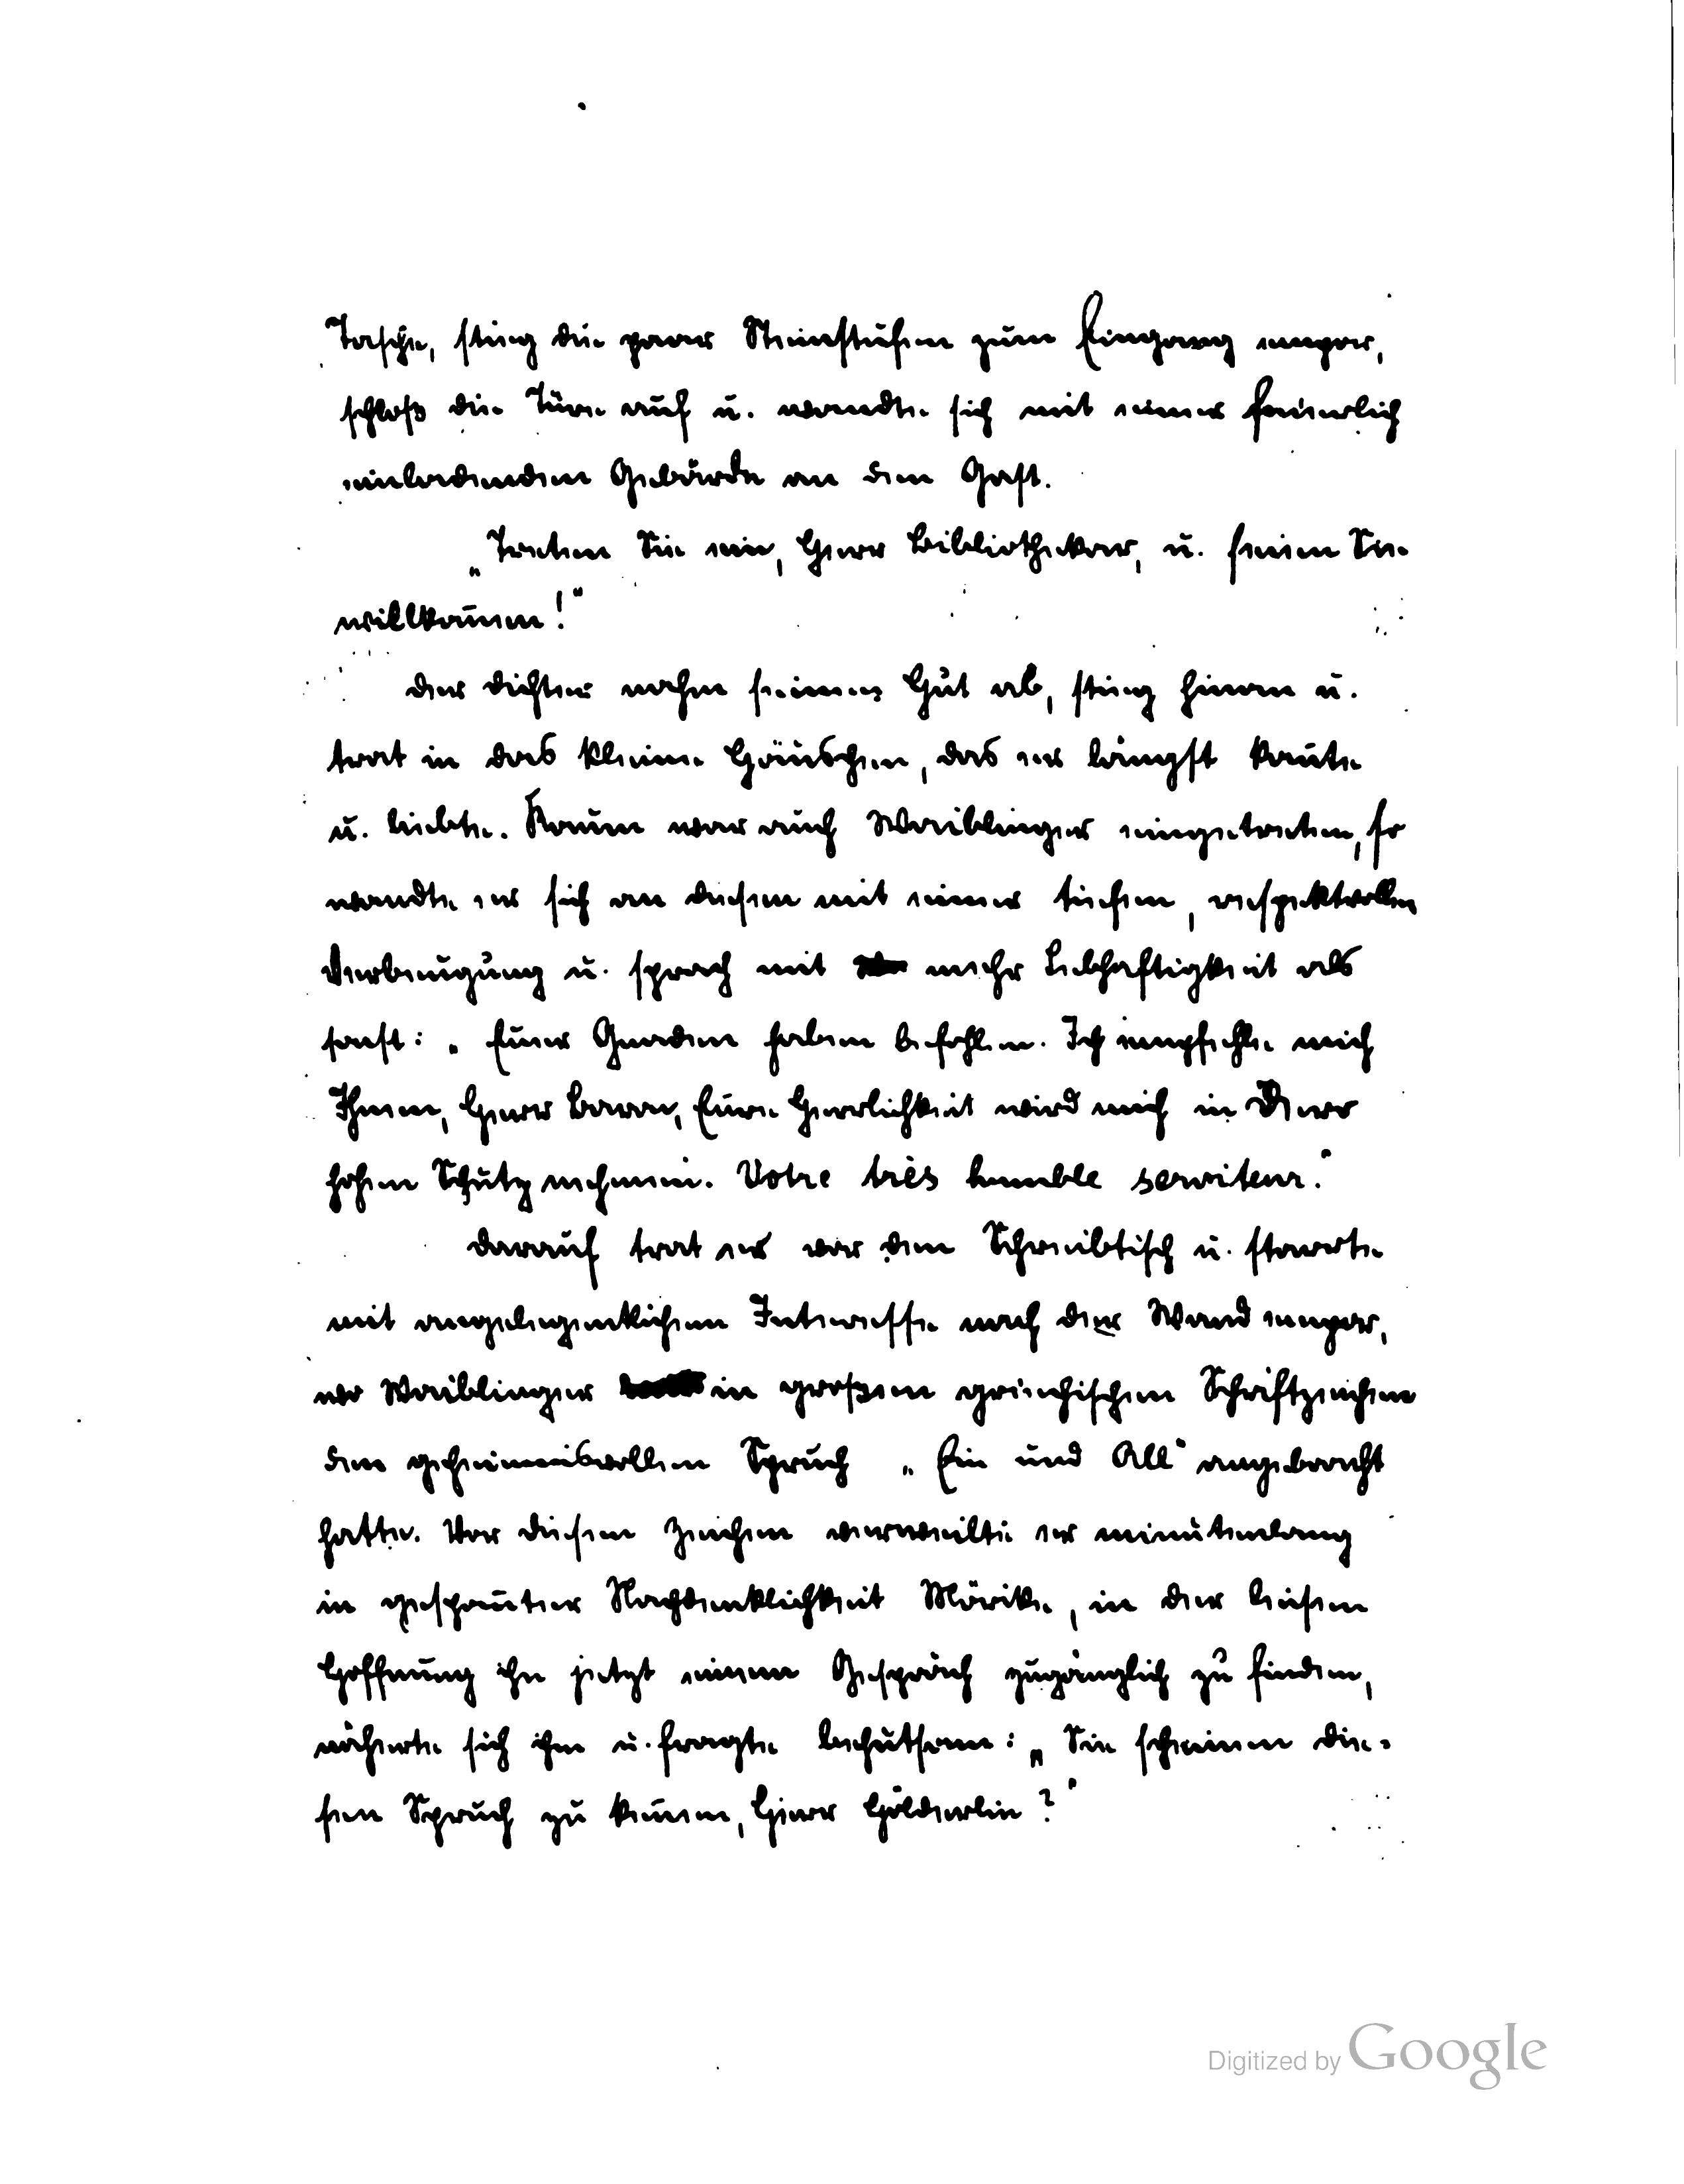 Tasche, stieg die paar Steinstufen zum Eingang empor,
schloß die Türe auf u. wandte sich mit einer feierlich
einladenden Gebärde an den Gast.
„Treten Sie ein, Herr Bibliothekar, u. seien Sie
willkom̅en!"
Der Dichter nahm seinen Hut ab, stieg hinan u.
trat in das kleine Häuschen, das er längst kan̅te
u. liebte. Kaum war auch Waiblinger eingetreten, so
wandte er sich an diesen mit einer tiefen, respektvollen
Verbeugung u. sprach mit mehr Lebhaftigkeit als
sonst: „Euer Gnaden haben befohlen. Ich empfehle mich
Ihnen, Herr Baron, Eure Herrlichkeit wird mich in Dero
hohen Schutz nehmen. Votre très humble serviteur."
Darauf trat er vor den Schreibtisch u. starrte
mit angelegentlichem Interesse nach der Wand empor,
wo Waiblinger in großen griechischen Schriftzeichen
den geheimnisvollen Spruch „Ein und All" angebracht
hatte. Vor diesem Zeichen verweilte er minutenlang
in gespan̅ter Nachdenklichkeit Mörike, in der leisen
Hoffnung ihn jetzt einem Gespräch zugänglich zu finden,
näherte sich ihm u. fragte behutsam: „Sie scheinen die-
sen Spruch zu ken̅en, Herr Hölderlin?"
Digitized by Google